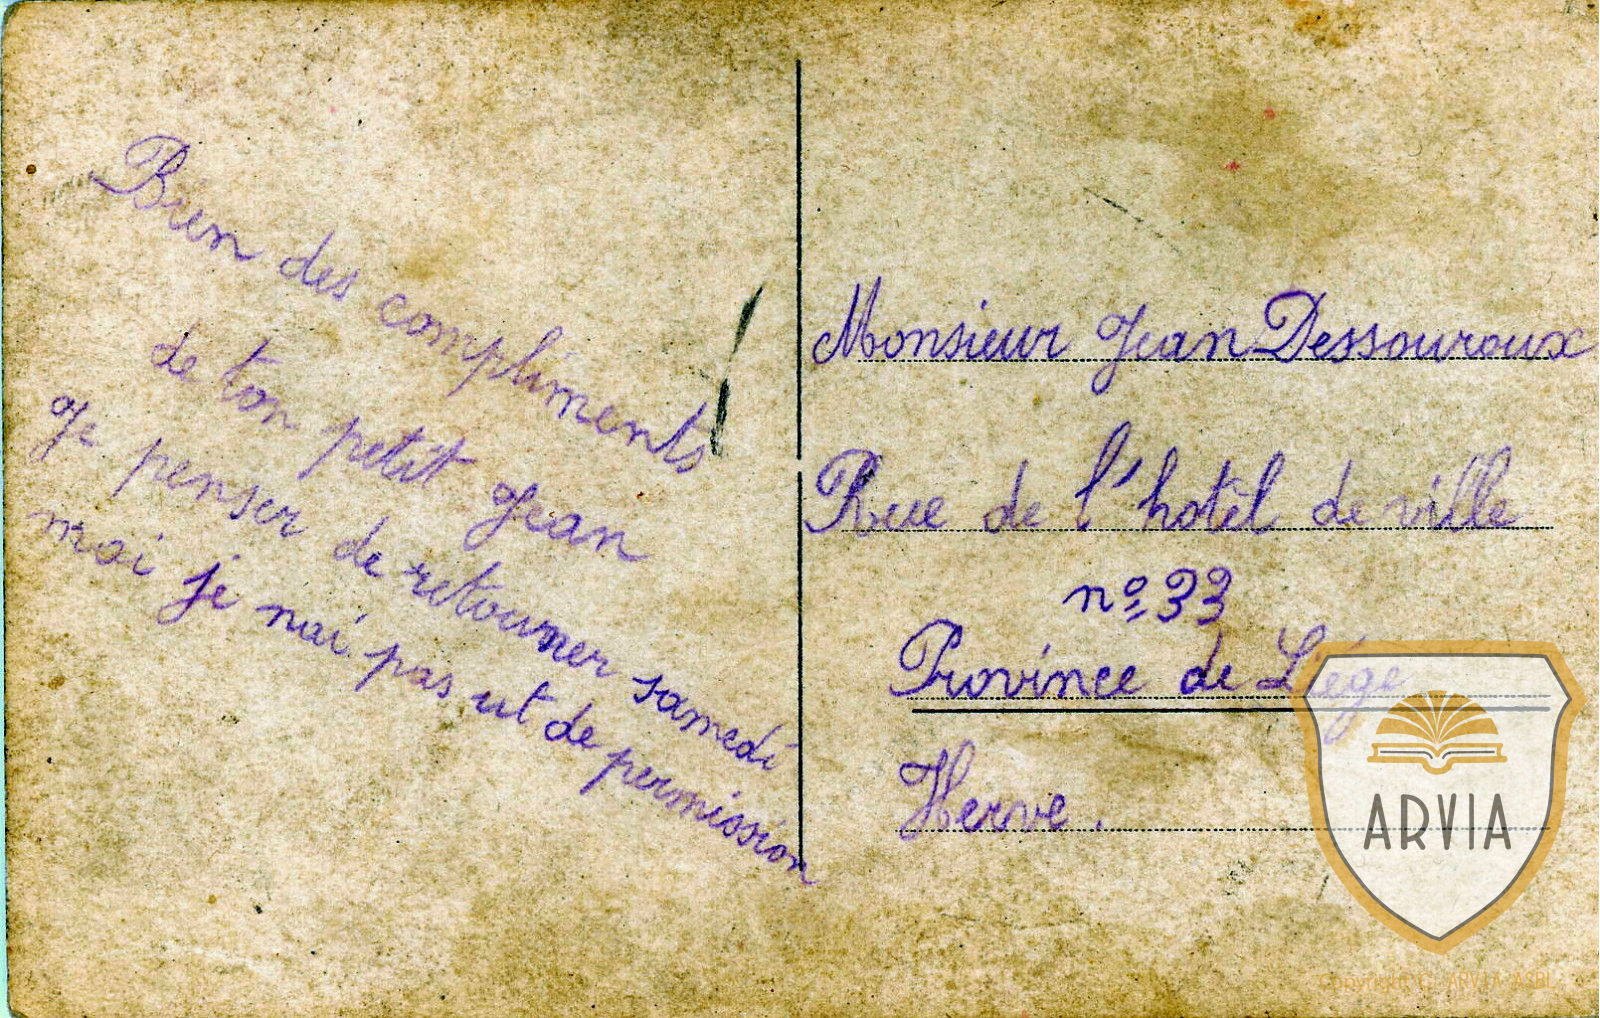 Bien des compliments
de ton petit Jean
Je penser de retourner samedi
moi je nai pas ut de permission
Monsieur Jean Dessouroux
Rue de l'hotel de ville
nº 33
Province de Liége
Herve.
ARVIA
Copyright © ARVIA ASBL